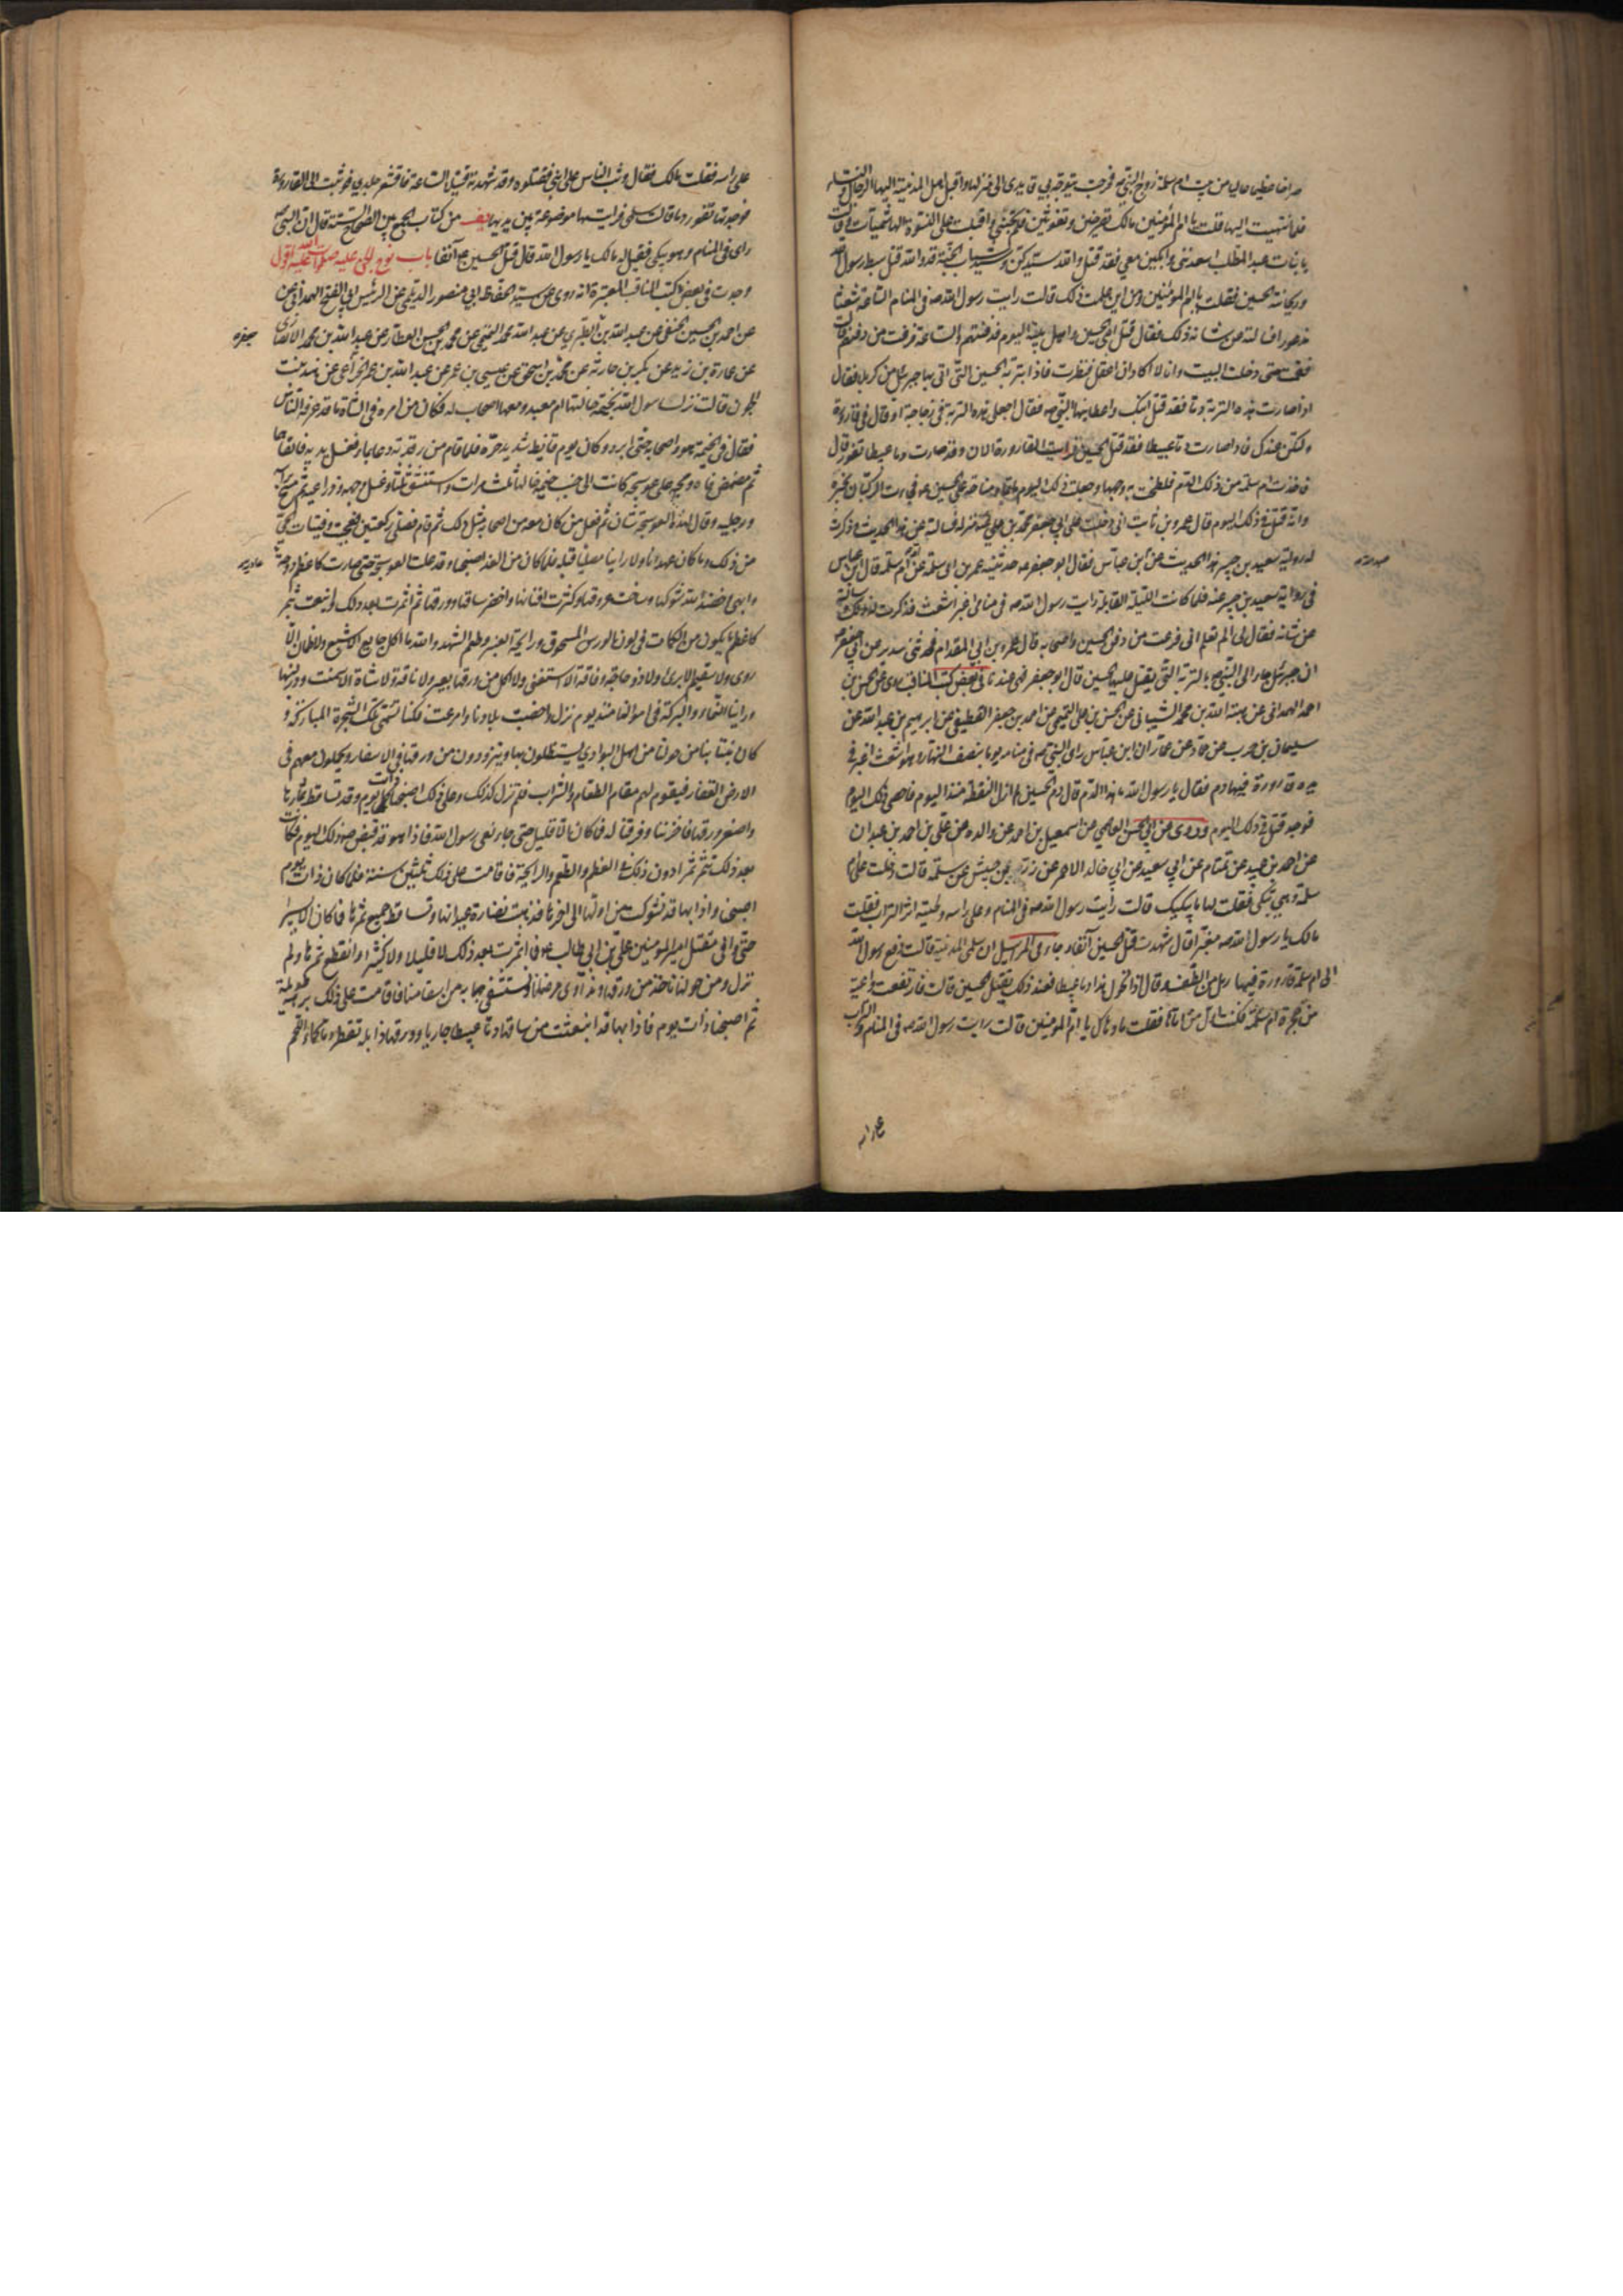 صراخا عظيما عاليا من بيت ام سلمة زوج النبي ص فخرجت يتوجه بي قايدي الى منزلها واقبل اهل المدينة اليها الرجال والنساء
فلما انتهيت اليها قلت يا ام المؤمنين مالك تصرخين وتغوثين فلم تجبني واقبلت على النسوة الهاشميات وقالت
يا بنات عبد المطلب اسعدنني وابكين معي فقد قتل والله سيدكن وسيد شباب الجنة قد والله قتل سبط رسول الله
وريحانته الحسين فقلت يا ام المؤمنين ومن اين علمت ذلك قالت رايت رسول الله ص في المنام الساعة شعثا
مذعورا فسالته عن شانه ذلك فقال قتل ابني الحسين واهل بيته اليوم فدفنتهم والساعة فرغت من دفنهم قالت
فقمت حتى دخلت البيت وانا لا اكاد ان اعقل فنظرت فاذا بتربة الحسين التي اتى بها جبرئيل من كربلا فقال
اذا صارت هذه التربة دما فقد قتل ابنك واعطانيها النبي ص فقال اجعلي هذه التربة في زجاجة او قال في قارورة
ولتكن عندك فاذا صارت دما عبيطا فقد قتل الحسين فرايت القارورة الان وقد صارت دما عبيطا تفور قال
فاخذت ام سلمة من ذلك الدم فلطخت به وجهها وجعلت ذلك اليوم ماتما ومناحة على الحسين ع وفجاءت الركبان بخبره
وانه قتل في ذلك اليوم قال عمرو بن ثابت اني دخلت على ابي جعفر محمد بن علي منزله فسالته عن هذا الحديث وذكرت
له رواية سعيد بن جبير هذا الحديث عن ابن عباس فقال ابو جعفر ع حدثنيه عمر بن ابي سلمة عن امه ام سلمة قال ابن عباس
في رواية سعيد بن جبير عنه فلما كانت الليلة القابلة رايت رسول الله ص في منامي اغبر اشعث فذكرت له ذلك وسالته
عن شانه فقال لي الم تعلم اني فرغت من دفن الحسين واصحابه قال عمرو بن ابي المقدام فحدثني سدير عن ابي جعفر ع
ان جبرئيل جاء الى النبي ص بالتربة التي يقتل عليها الحسين قال ابو جعفر فهي عندنا في بعض كتب المناقب روي عن الحسن بن
احمد الهمداني عن هبة الله بن محمد الشيباني عن الحسن بن علي التميمي عن احمد بن جعفر القطيعي عن ابراهيم بن عبد الله عن
سليمان بن حرب عن حماد عن عمار ان ابن عباس راى النبي ص في منامه يوما بنصف النهار وهو اشعث اغبر في
يده قارورة فيها دم فقال يا رسول الله ما هذا الدم قال دم الحسين لم ازل التقطه منذ اليوم فاحصي ذلك اليوم
فوجد قتل في ذلك اليوم وروي عن ابي الحسن العاصمي عن اسمعيل بن احمد عن والده عن علي بن احمد بن عبدان
عن احمد بن عبيد عن تمتام عن ابي سعيد عن ابي خالد الاحمر عن زر بن حبيش عن سلمة قالت دخلت على ام
سلمة وهي تبكي فقلت لها ما يبكيك قالت رايت رسول الله ص في المنام وعلى راسه ولحيته اثر التراب فقلت
مالك يا رسول الله ص مغبرا قال شهدت قتل الحسين آنفا وجاء في المراسيل ان سلمى المدنية قالت دفع رسول الله
الى ام سلمة قارورة فيها رمل من الطف وقال اذا تحول هذا دما عبيطا فعند ذلك يقتل الحسين قالت فارتفعت واعية
من حجرة ام سلمة فكنت اول من اتاها فقلت ما دهاك يا ام المؤمنين قالت رايت رسول الله ص في المنام والتراب
على راسه فقلت مالك فقال وثب الناس على ابني فقتلوه وقد شهدته قتيلا الساعة فاقشعر جلدي فوثبت الى القارورة
فوجدتها تفور دما قالت سلمى فرايتها موضوعة بين يديها يف من كتاب الجمع بين الصحاح الستة قال ان النبي ص
راى في المنام وهو يبكي فقيل له مالك يا رسول الله قال قتل الحسين ع آنفا باب نوح الجن عليه صلوات الله عليه اقول
وجدت في بعض كتب المناقب المعتبرة انه روى عن سيد الحفاظ ابي منصور الديلمي عن الرئيس ابي الفتح الهمداني عن
عن احمد بن الحسين الحنفي عن عبد الله بن الطبري عن عبد الله محمد التميمي عن محمد بن الحسن العطار عن عبد الله بن محمد الانصاري
عن عمارة بن زيد عن بكر بن حارثة عن محمد بن اسحق عن عيسى بن عمر عن عبد الله بن عمر الخزاعي عن هند بنت
الجون قالت نزل رسول الله بخيمة خالتها ام معبد ومعها اصحاب له فكان من امره في الشاة ما قد عرفه الناس
فقال في الخيمة هو واصحابه حتى ابرد وكان يوم قايظ شديد حره فلما قام من رقدته دعا بماء فغسل يديه فانقاهما
ثم مضمض فاه ومجه على عوسجة كانت الى جنب خيمة خالتها ثلث مرات واستنشق ثلثا وغسل وجهه وذراعيه ثم مسح براسه
ورجليه وقال لهذه العوسجة شان ثم فعل من كان معه من اصحابه مثل ذلك ثم قام فصلى ركعتين فعجبت وفتيات الحي
من ذلك وما كان عهدنا ولا راينا مصليا قبله فلما كان من الغد اصبحنا وقد علت العوسجة حتى صارت كاعظم دوحة
وابهى وخضد الله شوكها وساخت عروقها وكثرت افنانها واخضر ساقها وورقها ثم اثمرت بعد ذلك واينعت بثمر
كاعظم ما يكون من الكمات في لون الورس المسحوق ورايحة العنبر وطعم الشهد والله ما اكل جايع الا شبع ولا ظمان الا
روي ولا سقيم الا برئ ولا ذو حاجة وفاقة الا استغنى ولا اكل من ورقها بعير ولا ناقة ولا شاة الا سمنت ودر لبنها
وراينا النماء والبركة في اموالنا منذ يوم نزل واخصبت بلادنا وامرعت فكنا نسمي تلك الشجرة المباركة و
كان ينتابنا من حولنا من اهل البوادي يستظلون بها ويتزودون من ورقها في الاسفار ويحملون معهم في
الارض القفار فيقوم لهم مقام الطعام والشراب فلم تزل كذلك وعلى ذلك اصبحنا ذات يوم وقد تساقط ثمارها
واصفر ورقها فاحزننا وفرقنا له فما كان الا قليل حتى جاء نعي رسول الله فاذا هو قد قبض ص ذلك اليوم فكانت
بعد ذلك تثمر ثمرا دون ذلك في العظم والطعم والرايحة فاقامت على ذلك ثلثين سنة فلما كان ذات يوم
اصبحنا واذا بها قد تشوكت من اولها الى اخرها فذهبت نضارة عيدانها وتساقط جميع ثمرها فما كان الا يسيرا
حتى وافى مقتل امير المؤمنين علي بن ابي طالب ع فما اثمرت بعد ذلك لا قليلا ولا كثيرا وانقطع ثمرها ولم
نزل ومن حولنا ناخذ من ورقها ونداوي مرضانا ونستشفي بها به من اسقامنا فاقامت على ذلك برهة طويلة
ثم اصبحنا ذات يوم فاذا بها قد انبعثت من ساقها دما عبيطا جاريا وورقها ذابلة تقطر دما كماء اللحم